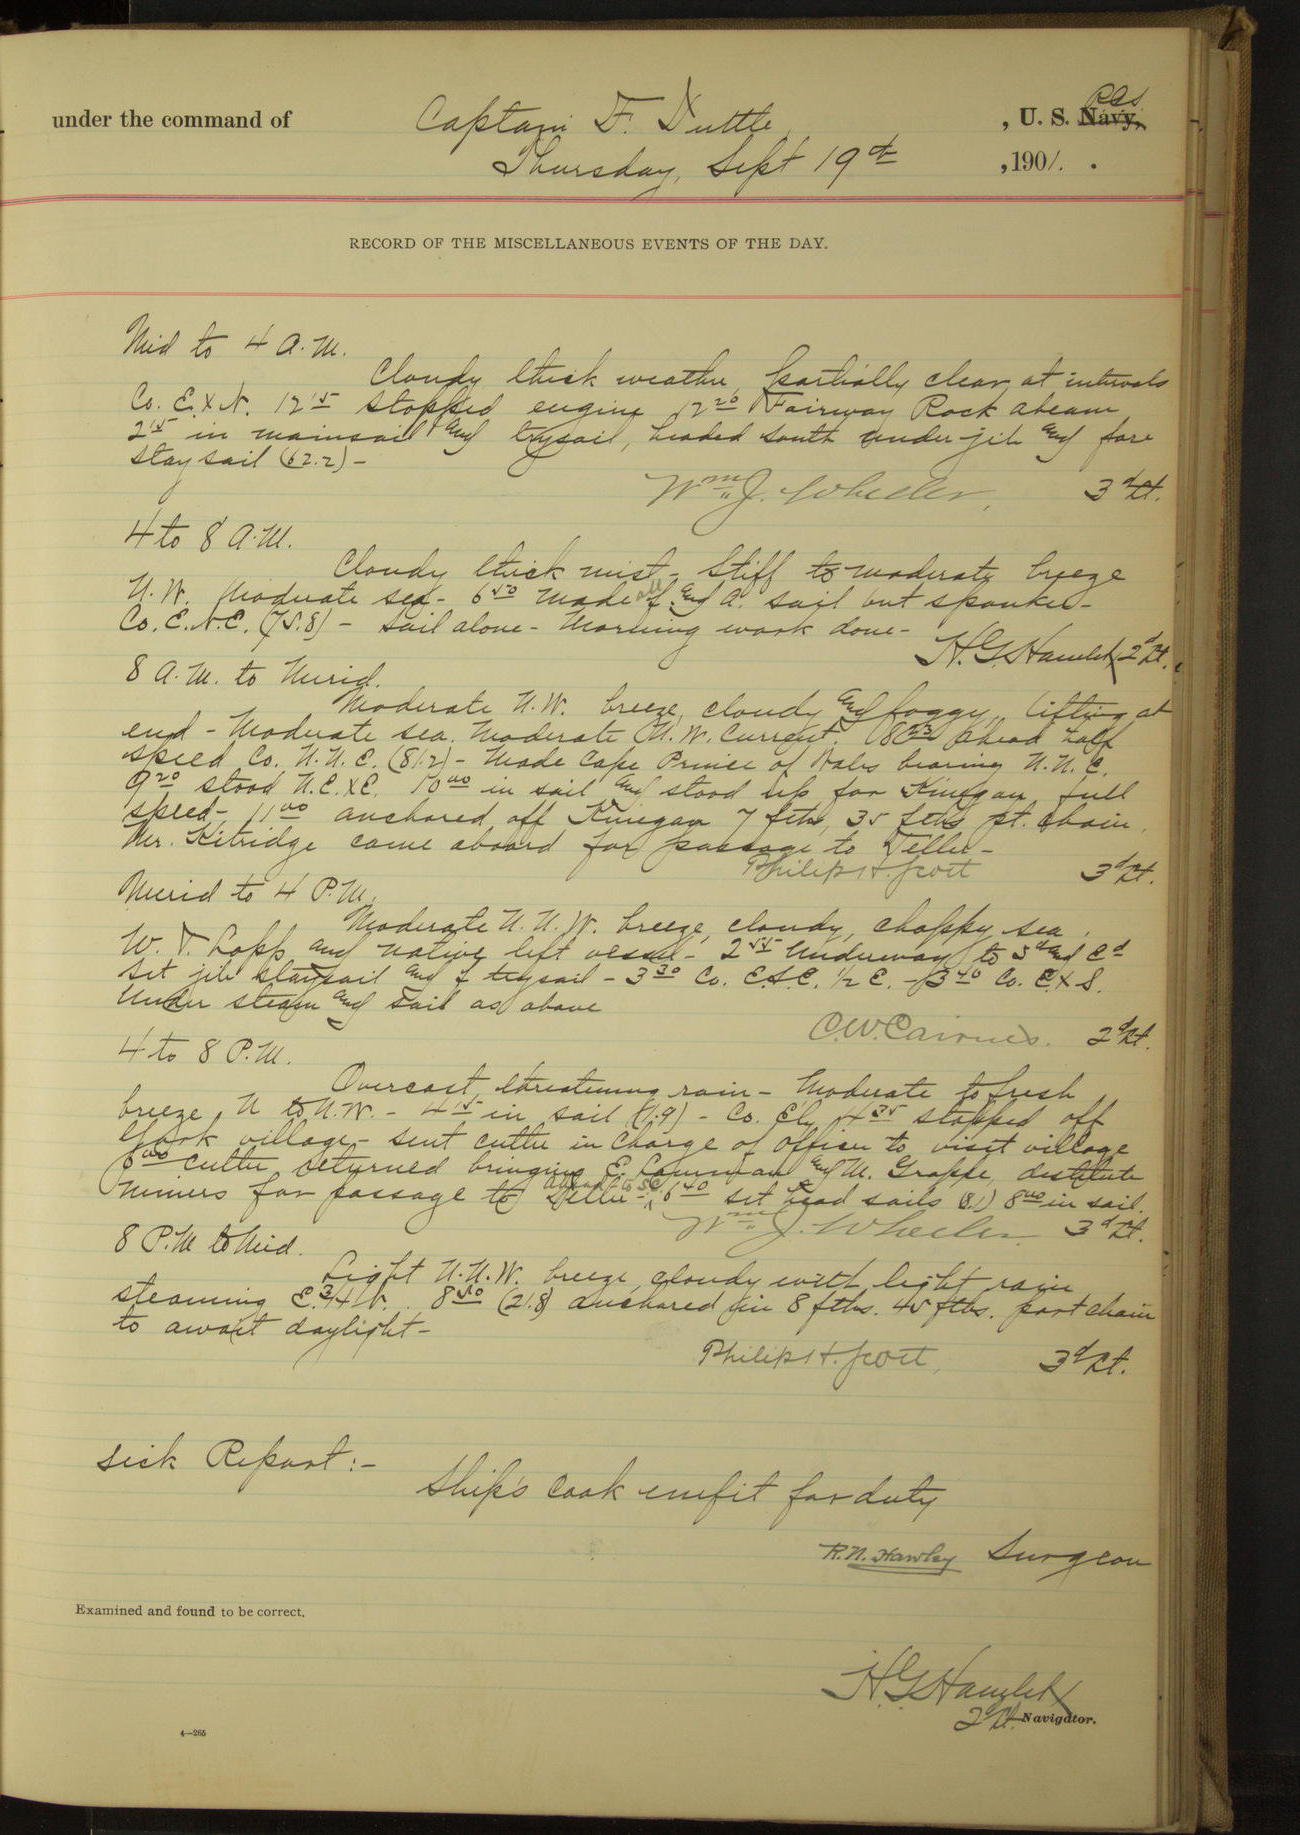 under the command of Captain F. Tuttle, U. S. Navy, RCS
Thursday, Sept 19th, 1901.
RECORD OF THE MISCELLANEOUS EVENTS OF THE DAY.
Mid to 4 A.M.
Cloudy thick weather, partially clear at intervals
Co. E.xN. 12 15 stopped engine 12 20 Fairway Rock abeam
2 15 in mainsail and trysail, headed south under jib and fore
staysail (62.2) -
Wm. J. Wheeler, 3d Lt.
4 to 8 A.M.
Cloudy thick mist - Stiff to moderate breeze
N.W. Moderate sea - 6 50 made all f. and a. sail but spanker -
Co. E.N.E. (75.8) - sail alone - Morning work done -
H.G. Hamlet 2d Lt.
8 A.M. to Merid.
Moderate N.W. breeze, cloudy and foggy, lifting at
end - Moderate sea. Moderate N.W. Current. 8 23 Ahead half
speed Co. N.N.E. (81.2) - Made Cape Prince of Wales bearing N.N.E.
9 20 stood N.E.xE. 10 00 in sail and stood up for Kinegan full
speed - 11 00 anchored off Kinegan 7 fths, 35 fths pt. chain.
Mr. Kitridge came aboard for passage to Teller -
Philip H. Scott 3d Lt.
Merid to 4 P.M.
Moderate N.N.W. breeze, cloudy, choppy sea.
W. T. Lopp and native left vessel - 2 55 Underway to Sd and Ed
Set jib staysail and f trysail - 3 30 Co. E.S.E. 1/2 E. - 3 40 Co. E.xS.
Under steam and sail as above
C.W. Cairnes. 2d Lt.
4 to 8 P.M.
Overcast, threatening rain - Moderate to fresh
breeze, N to N.W. - 4 15 in sail (1.9) - Co. Ely 4 35 stopped off
York village - sent cutter in charge of officer to visit village
6 00 cutter returned bringing E. and M. Grappe, destitute
miners for passage to Teller - 6 40 set head sails (8.1) 8 00 in sail.
Wm. J. Wheeler. 3d Lt.
8 P.M to Mid.
Light N.N.W. breeze, cloudy with light rain
steaming E.3/4 N. 8 50 (21.8) anchored in 8 fths. 45 fths. port chain
to await daylight -
Philip H. Scott, 3d Lt.
Sick Report:-
Ship's Cook unfit for duty
R.N. Hawley Surgeon
Examined and found to be correct.
H.G. Hamlet
2d Lt. Navigator.
4—265